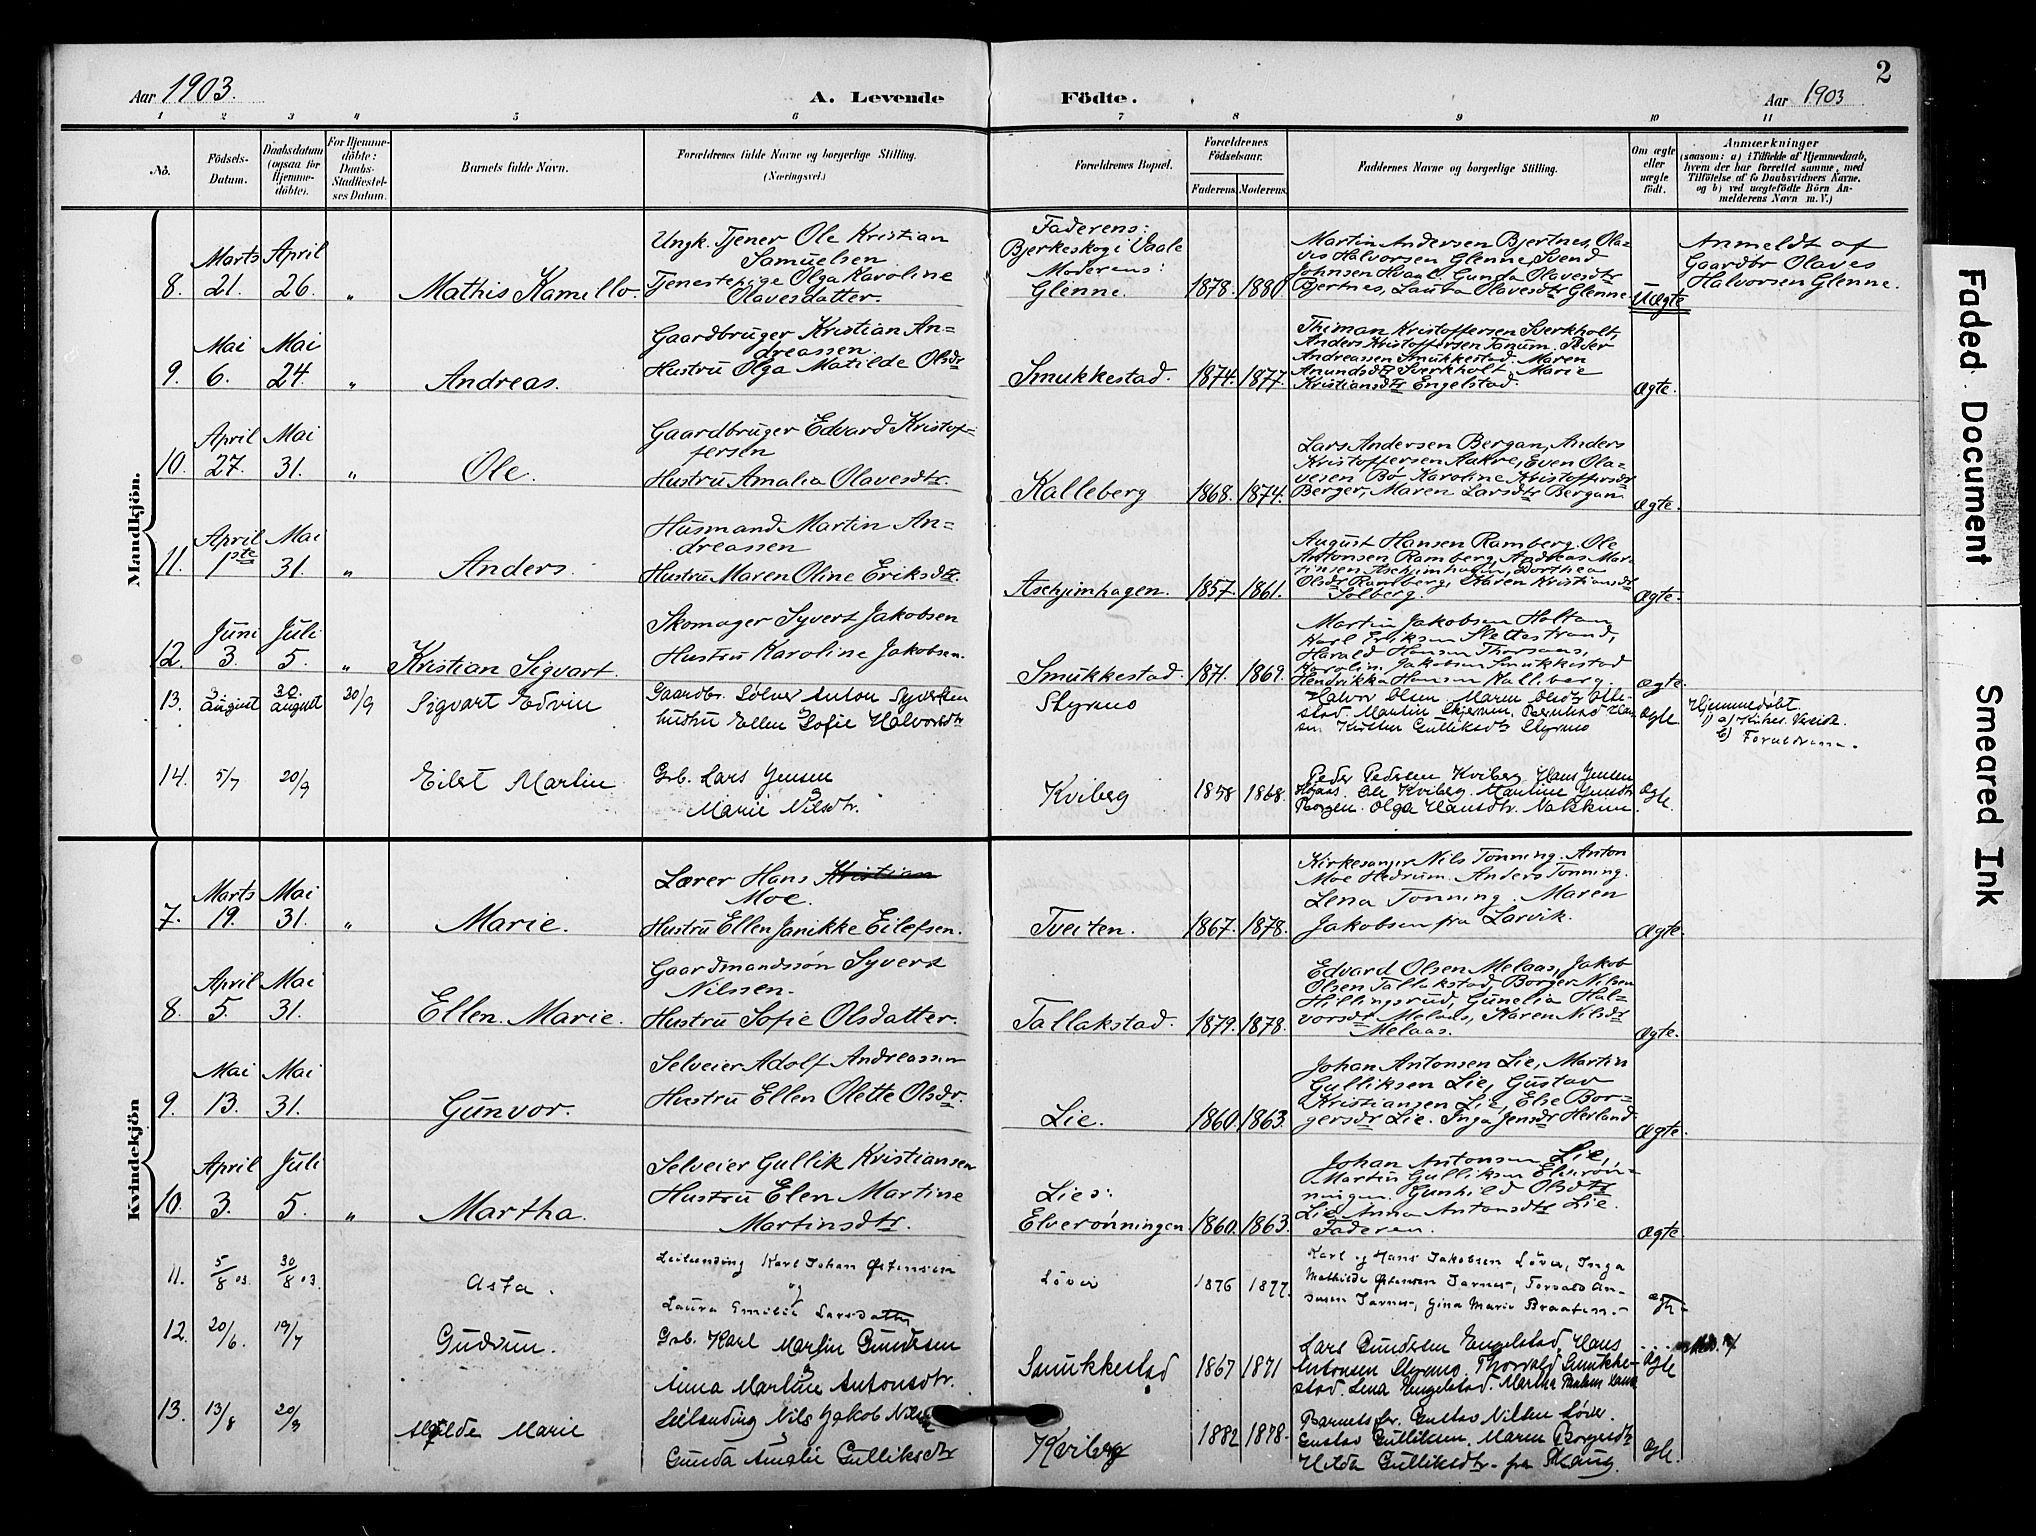 Aar 1903.
A. Levende Födte.
Aar 1903
2
1 2 3 4 5 6 7 8 9 10 11
No.
Födsels-Datum.
Daabsdatum (ogsaa for Hjemme-döbte).
For Hjemme-döbte: Daabs-Stadfæstel-ses Datum.
Barnets fulde Navn.
Forældrenes fulde Navne og borgerlige Stilling.
(Næringsvei.)
Forældrenes Bopæl.
Forældrenes Födselsaar.
Faderens. Moderens.
Faddernes Navne og borgerlige Stilling.
Om ægte eller uægte födt.
Anmærkninger
(saasom: a) i Tilfælde af Hjemmedaab, hvem der har forrettet samme, med Tilföielse af to Daabsvidners Navne, og b) ved uægtefödte Börn An-melderens Navn m. V.)
Mandkjön.
8. Marts 21. April 26. " Mathis Kamillo.
Ungk. Tjener Ole Kristian
Samuelsen
Tjenestepige Olga Karoline
Olavesdatter.
Faderens:
Bjerkeskog i Vaale
Moderens:
Glenne.
1878. 1880.
Martin Andersen Bjertnes, Ola-
ves Halvorsen Glenne, Svend
Johnsen Hvaal, Gunda Olavesdtr
Bjertnes, Laura Olavesdtr Glenne
Uægte
Anmeldt af
Gaardbr Olaves
Halvorsen Glenne.
9. Mai 6. Mai 24. " Andreas.
Gaardbruger Kristian An=
dreassen.
Hustru Olga Matilde Olsdr
Smukkestad. 1874. 1877.
Thiman Kristoffersen Sverkholt,
Anders Kristoffersen Tanum, Peder
Andreassen Smukkestad. Maren
Amundsdtr Sverkholt Marie
Kristiansdtr Engelstad.
Ægte.
10. April 27. Mai 31. " Ole.
Gaardbruger Edvard Kristof=
fersen
Hustru Amalia Olavesdtr.
Kalleberg 1868. 1874.
Lars Andersen Bergan, Anders
Kristoffersen Aakre, Even Ola-
vesen Bø Karoline Kristoffersdr
Berger, Maren Larsdtr Bergan
Ægte.
11. April 1ste Mai 31. " Anders.
Husmand Martin An=
dreassen
Hustru Maren Oline Eriksdtr.
Aschjimhagen. 1857. 1861.
August Hansen Ramberg. Ole
Antonsen Ramberg, Andreas Mar-
tinsen Aschjimhagen, Dorthea
Olsdr Ramberg, Karen Kristiansdr
Solberg.
Ægte.
12. Juni 3. Juli 5. " Kristian Sigvart.
Skomager Syvert Jakobsen
Hustru Karoline Jakobsen.
Smukkestad. 1871. 1869.
Martin Jakobsen Holtan
Karl Eriksen Slettestrand,
Harald Hansen Thorsaas,
Karolin. Jakobsen Smukkestad
Hendrikka Hansen Kalleberg.
Ægte.
13. 3 august 30. august 20/9 Sigvart Edvin
Gaardbr. Sølver Anton Syvertsen
hustru Ellen Sofie Halvorsdtr
Styrmo
Halvor Olsen Maren Olsdtr
Kirsten Gulliksdtr Styrmo
Ægte
Hjemmedøbt
14. 5/7 20/9 Eilert Martin
Grb. Lars Jensen
Marie Nilsdtr.
Kviberg 1858 1868.
Peder Pedersen Kviberg Hans Jensen
Ole Kviberg. Martine Jensdtr
Borgen. Olga Hansdtr.
Ægte.
Kvindekjön
7. Marts 19. Mai 31. " Marie.
Lærer Hans Kristian
Moe.
Hustru Ellen Janikke Eilefsen.
Tveiten. 1867. 1878.
Kirkesanger Nils Tonning. Anton
Moe Hedrum. Anders Tonning.
Lena Tonning. Maren
Jakobsen fra Larvik.
Ægte.
8. April 5. Mai 31. Ellen Marie.
Gaardmandssøn Syvert
Nilssen.
Hustru Sofie Olsdatter.
Tallakstad. 1879. 1878.
Edvard Olsen Melaas, Jakob
Olsen Tallakstad, Borger Nilsen
Hillingsrud, Gunelia Hal-
vorsdr Melaas, Karen Nilsdr
Melaas.
Ægte.
9. Mai 13. Mai 31. Gunvor.
Selveier Adolf Andreassen
Hustru Ellen Olette Olsdr.
Lie. 1860. 1863.
Johan Antonsen Lie, Martin
Gulliksen Lie, Gustav
Kristiansen Lie, Else Bor-
gersdr Lie. Inga Jensdr Herland
Ægte.
10. April 3. Juli 5. " Martha.
Selveier Gullik Kristiansen
Hustru Elen Martine
Martinsdtr.
Lies:
Elverønningen. 1860. 1863.
Johan Antonsen Lie,
Martin Gulliksen Elverøn-
ningen. Gunhild Olsdtr
Lie Anna Antonsdtr Lie.
Faderen.
Ægte.
11. 5/8 03. 30/8 03. Asta.
Leilænding Karl Johan Østensen
og
Laura Emilie Larsdatter
Løver 1876 1877.
Karl og Hans Jakobsen Løver, Inga
Mathilde Østensen Jarnes, Torvald An-
dersen Jarnes, Gina Marie Braaten.
12. 20/6 19/7 Gudrun.
Grb. Karl Martin Gundersen
Anna Martine Antonsdtr.
Smukkestad 1867 1871
Lars Gundersen Engelstad, Hans
Antonsen Styrmo, Thorvald Smukke-
stad. Lena Engelstad. Martha
Ægte
13. 13/8 20/9 Alfilde Marie
Leilænding Nils Jakob Nilsen
Gunda Amalie Gulliksdtr
Kviberg 1882 1878.
Barnets Far. Gustav Nilsen Løver.
Gustav Gulliksen. Maren Borgersdtr
Hilda Gulliksdtr. fra Skaug.
Ægte.
Faded Document
Smeared Ink